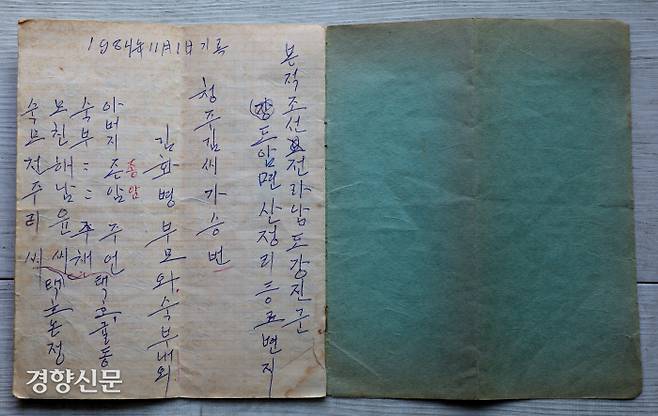 1984年 11月 1日 기록
본적 조선 전라남도 강진군
도암면 산정리 등 五번지
청주김씨가승번
김화병 부모와 숙부내외
아버지 존암 주언 택고 굴동
종암
숙부 〃〃 주채
모친 해남윤씨
숙모 전주리씨 택호 논정
경향신문